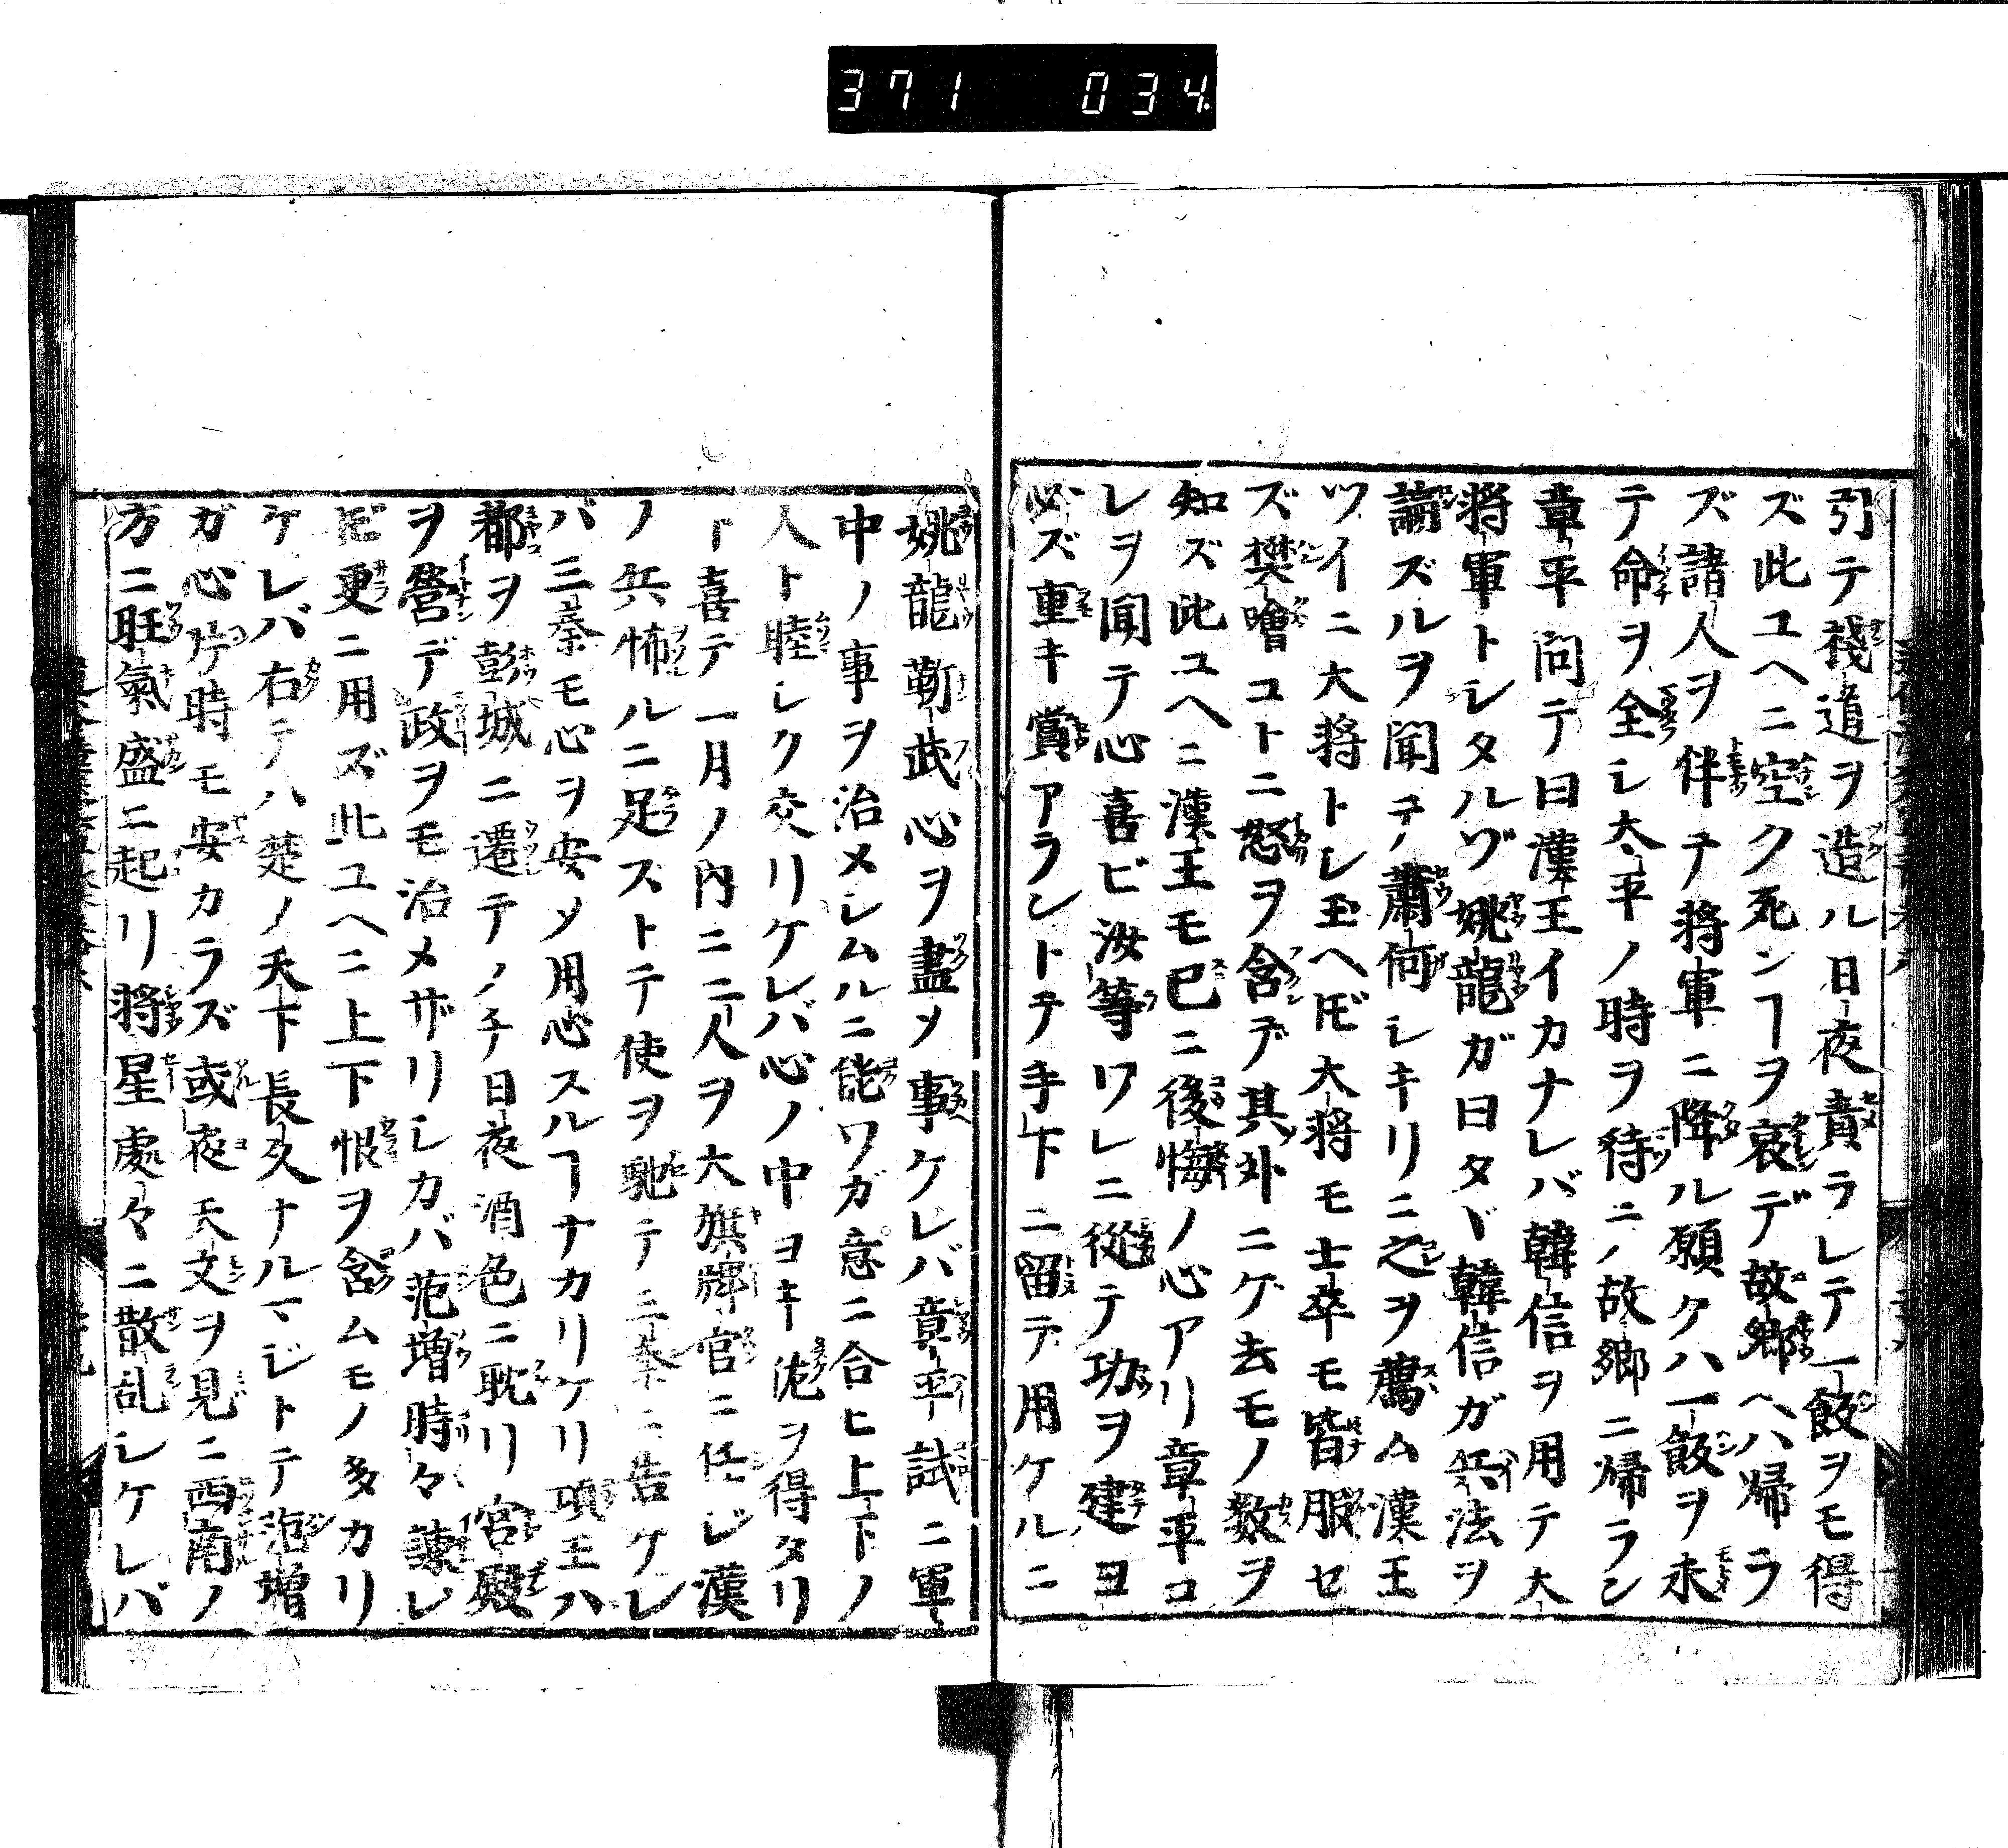 371 034
引テ棧道ヲ造ル日夜責ラレテ一飯ヲモ得
ズ此ユヘニ空ク死ンヿヲ哀デ故郷ヘハ帰ラ
ズ諸人ヲ伴テ將軍ニ降ル願クハ一飯ヲ求
テ命ヲ全シ太平ノ時ヲ待ニノ故郷ニ帰ラン
章平問テ曰漢王イカナレバ韓信ヲ用テ大
將軍トシタルゾ姚龍ガ曰タヾ韓信ガ兵法ヲ
論ズルヲ聞テ蕭何シキリニ之ヲ薦ム漢王
ツイニ大將トシ玉ヘ𪜈大將モ士卒モ皆服セ
ズ樊噲コトニ怒ヲ含デ其外ニゲ去モノ数ヲ
知ズ此ユヘニ漢王モ已ニ後悔ノ心アリ章平コ
レヲ聞テ心喜ビ汝等ワレニ從テ功ヲ建ヨ
必ズ重キ賞アラントテ手下ニ留テ用ケルニ
姚龍靳武心ヲ盡ソ事ケレバ章平試ニ軍
中ノ事ヲ治メシムルニ能ワガ意ニ合ヒ上下ノ
人ト睦シク交リケレバ心ノ中ヨキ兵ヲ得タリ
ト喜テ一月ノ内ニ二人ヲ大旗牌官ニ任ジ漢
ノ兵怖ルニ足ズトテ使ヲ馳テ三秦ニ告ケレ
バ三秦モ心ヲ安ソ用心スルヿナカリケリ項王ハ
都ヲ彭城ニ遷テノチ日夜酒色ニ耽リ宮殿
ヲ營デ政ヲモ治メザリシカバ范増時々諫レ
𪜈更ニ用ズ此ユヘニ上下恨ヲ含ムモノ多カリ
ケレバ右テハ楚ノ天下長久ナルマジトテ范増
ガ心片時モ安カラズ或夜天文ヲ見ニ西南ノ
方ニ旺氣盛ニ起リ將星處々ニ散乱シケレバ